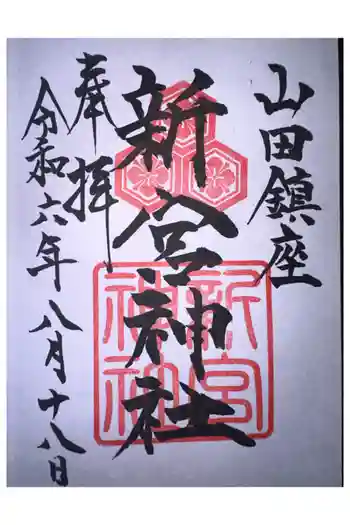 山田鎮座
新宮神社
奉拝
令和六年八月十八日